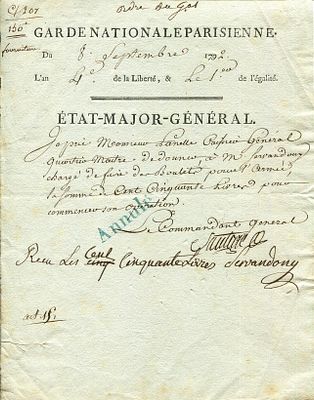 C/ 207
Ordre du Gal
150ᵗᵗ
fourniture
GARDE NATIONALE PARISIENNE.
Du 8. Septembre 1792
L'an 4.e de la Liberté, & Le 1.er de l'égalité.
ÉTAT-MAJOR-GÉNÉRAL.
Je prie Monsieur Général
quartier Maitre de donner à Mr Servandony
chargé de faire des Boulets pour l'Armée,
la somme de Cent Cinquante Livres pour
commencer son opération.
Annulé
Le Commandant Général
Santerre
Reçu Les Cent Cinquante Livres Servandony